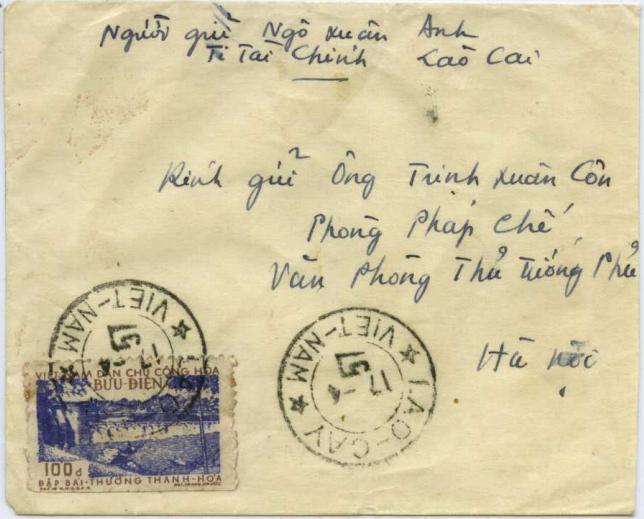 Người gửi Ngô Xuân Anh
Ti Tài Chính Lào Cai
Kính gửi Ông Trịnh Xuân Côn
Phòng Pháp Chế
Văn Phòng Thủ Tướng Phủ
Hà Nội
LAO-CAY
VIET-NAM
17
VIET-NAM
VIỆT NAM DÂN CHỦ CỘNG HÒA
BƯU-ĐIỆN
100đ
ĐẬP BÁI-THƯỢNG THANH-HÓA